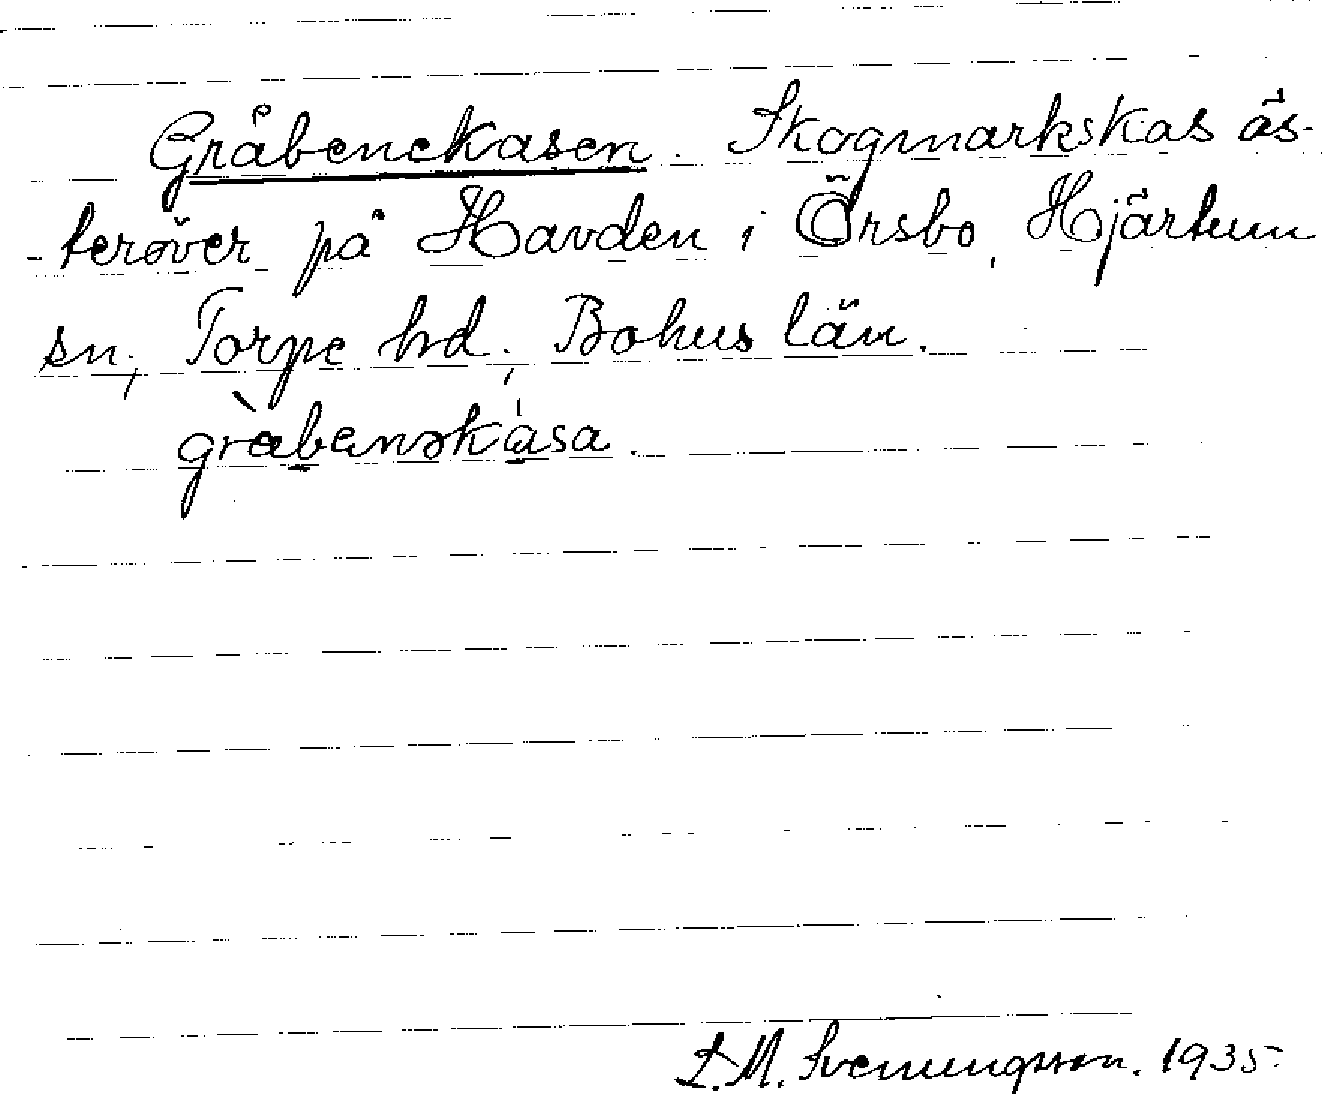 Gråbenekasen. Skogmarkskas ös-
teröver på Havden i Örsbo, Hjärtum
sn; Torpe hd; Bohus län.
grὰbenəkása.
L.M. Svenungsson. 1935.